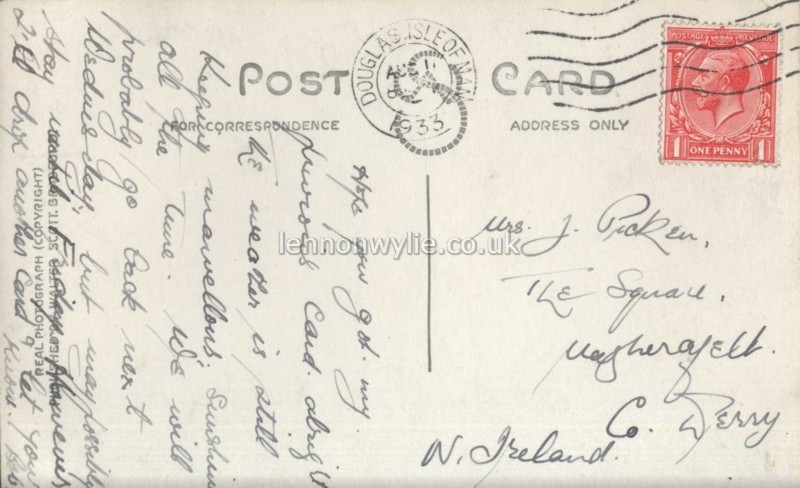 POST CARD
FOR CORRESPONDENCE
ADDRESS ONLY
DOUGLAS. ISLE OF MAN
1933
POSTAGE REVENUE
1 ONE PENNY 1
Hope you got my
previous card alright
The weather is still
keeping marvellous. Sunshine
all the time. We will
probably go back next
Wednesday, but may possibly
stay until Friday. However
I'll drop another card & let you
know.
Mrs. J. Picken,
The Square,
Magherafelt.
Co. Derry
N. Ireland.
REAL PHOTOGRAPH (COPYRIGHT)
WALTER SCOTT,
lennonwylie.co.uk